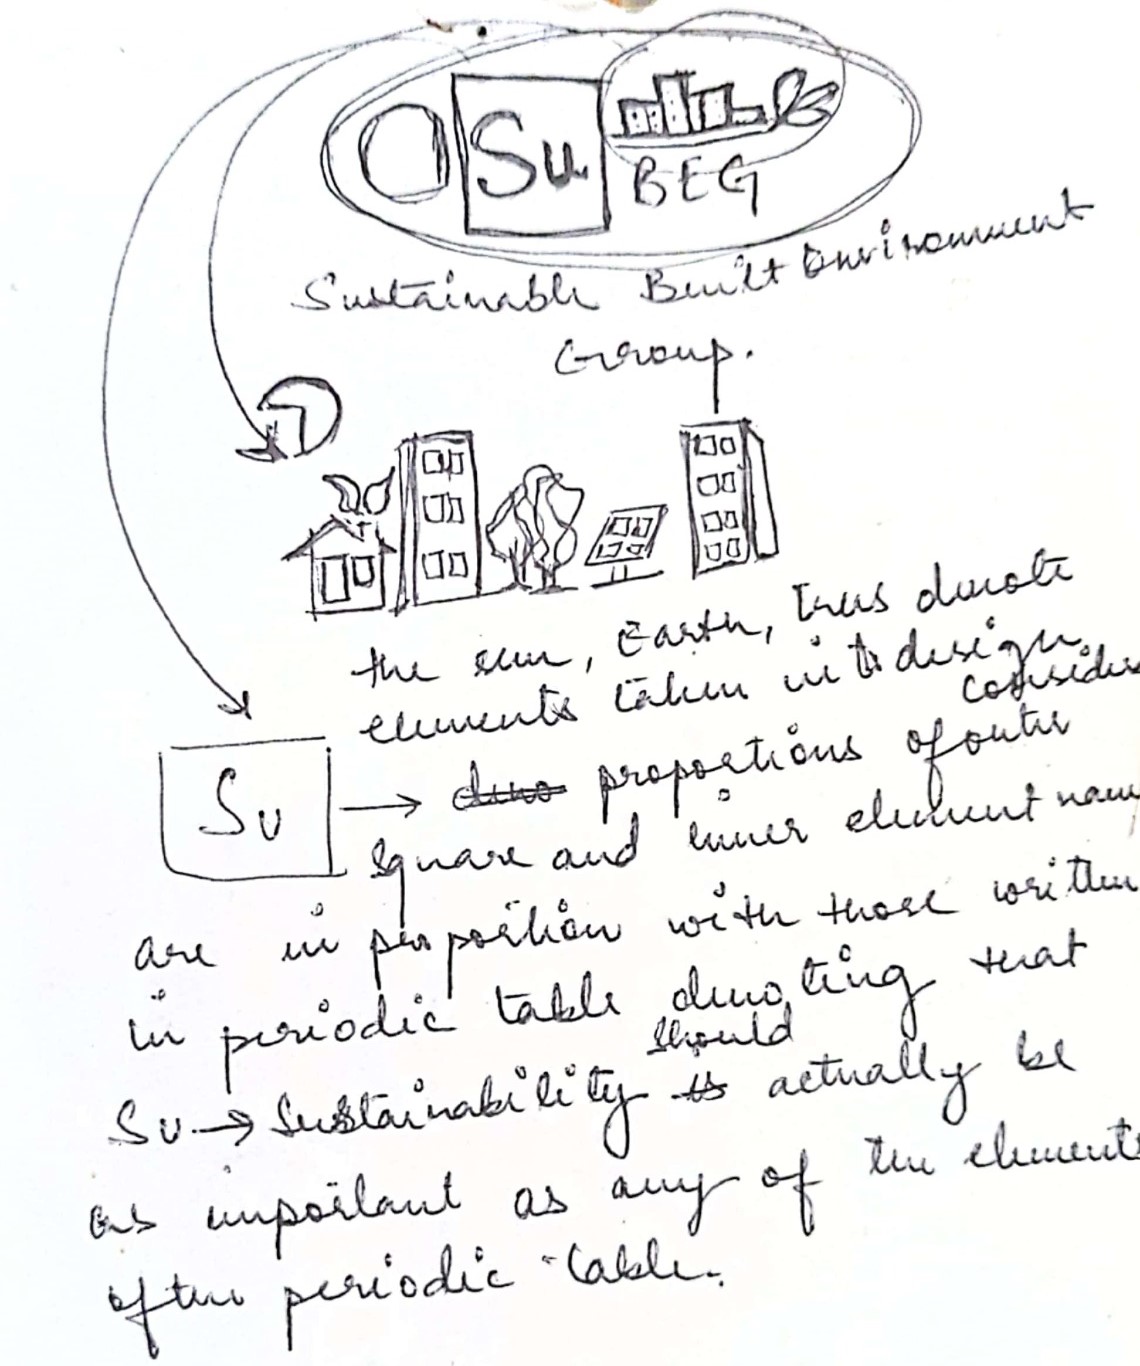 O Su
BEG
Sustainable Built Environment
Group.
the sun, Earth, Trees denote
elements taken into design
consider
Su → deno proportions of outer
square and inner element name
are in proportion with those written
in periodic table denoting that
should
Su → Sustainability is actually be
as important as any of the elements
of the periodic table.